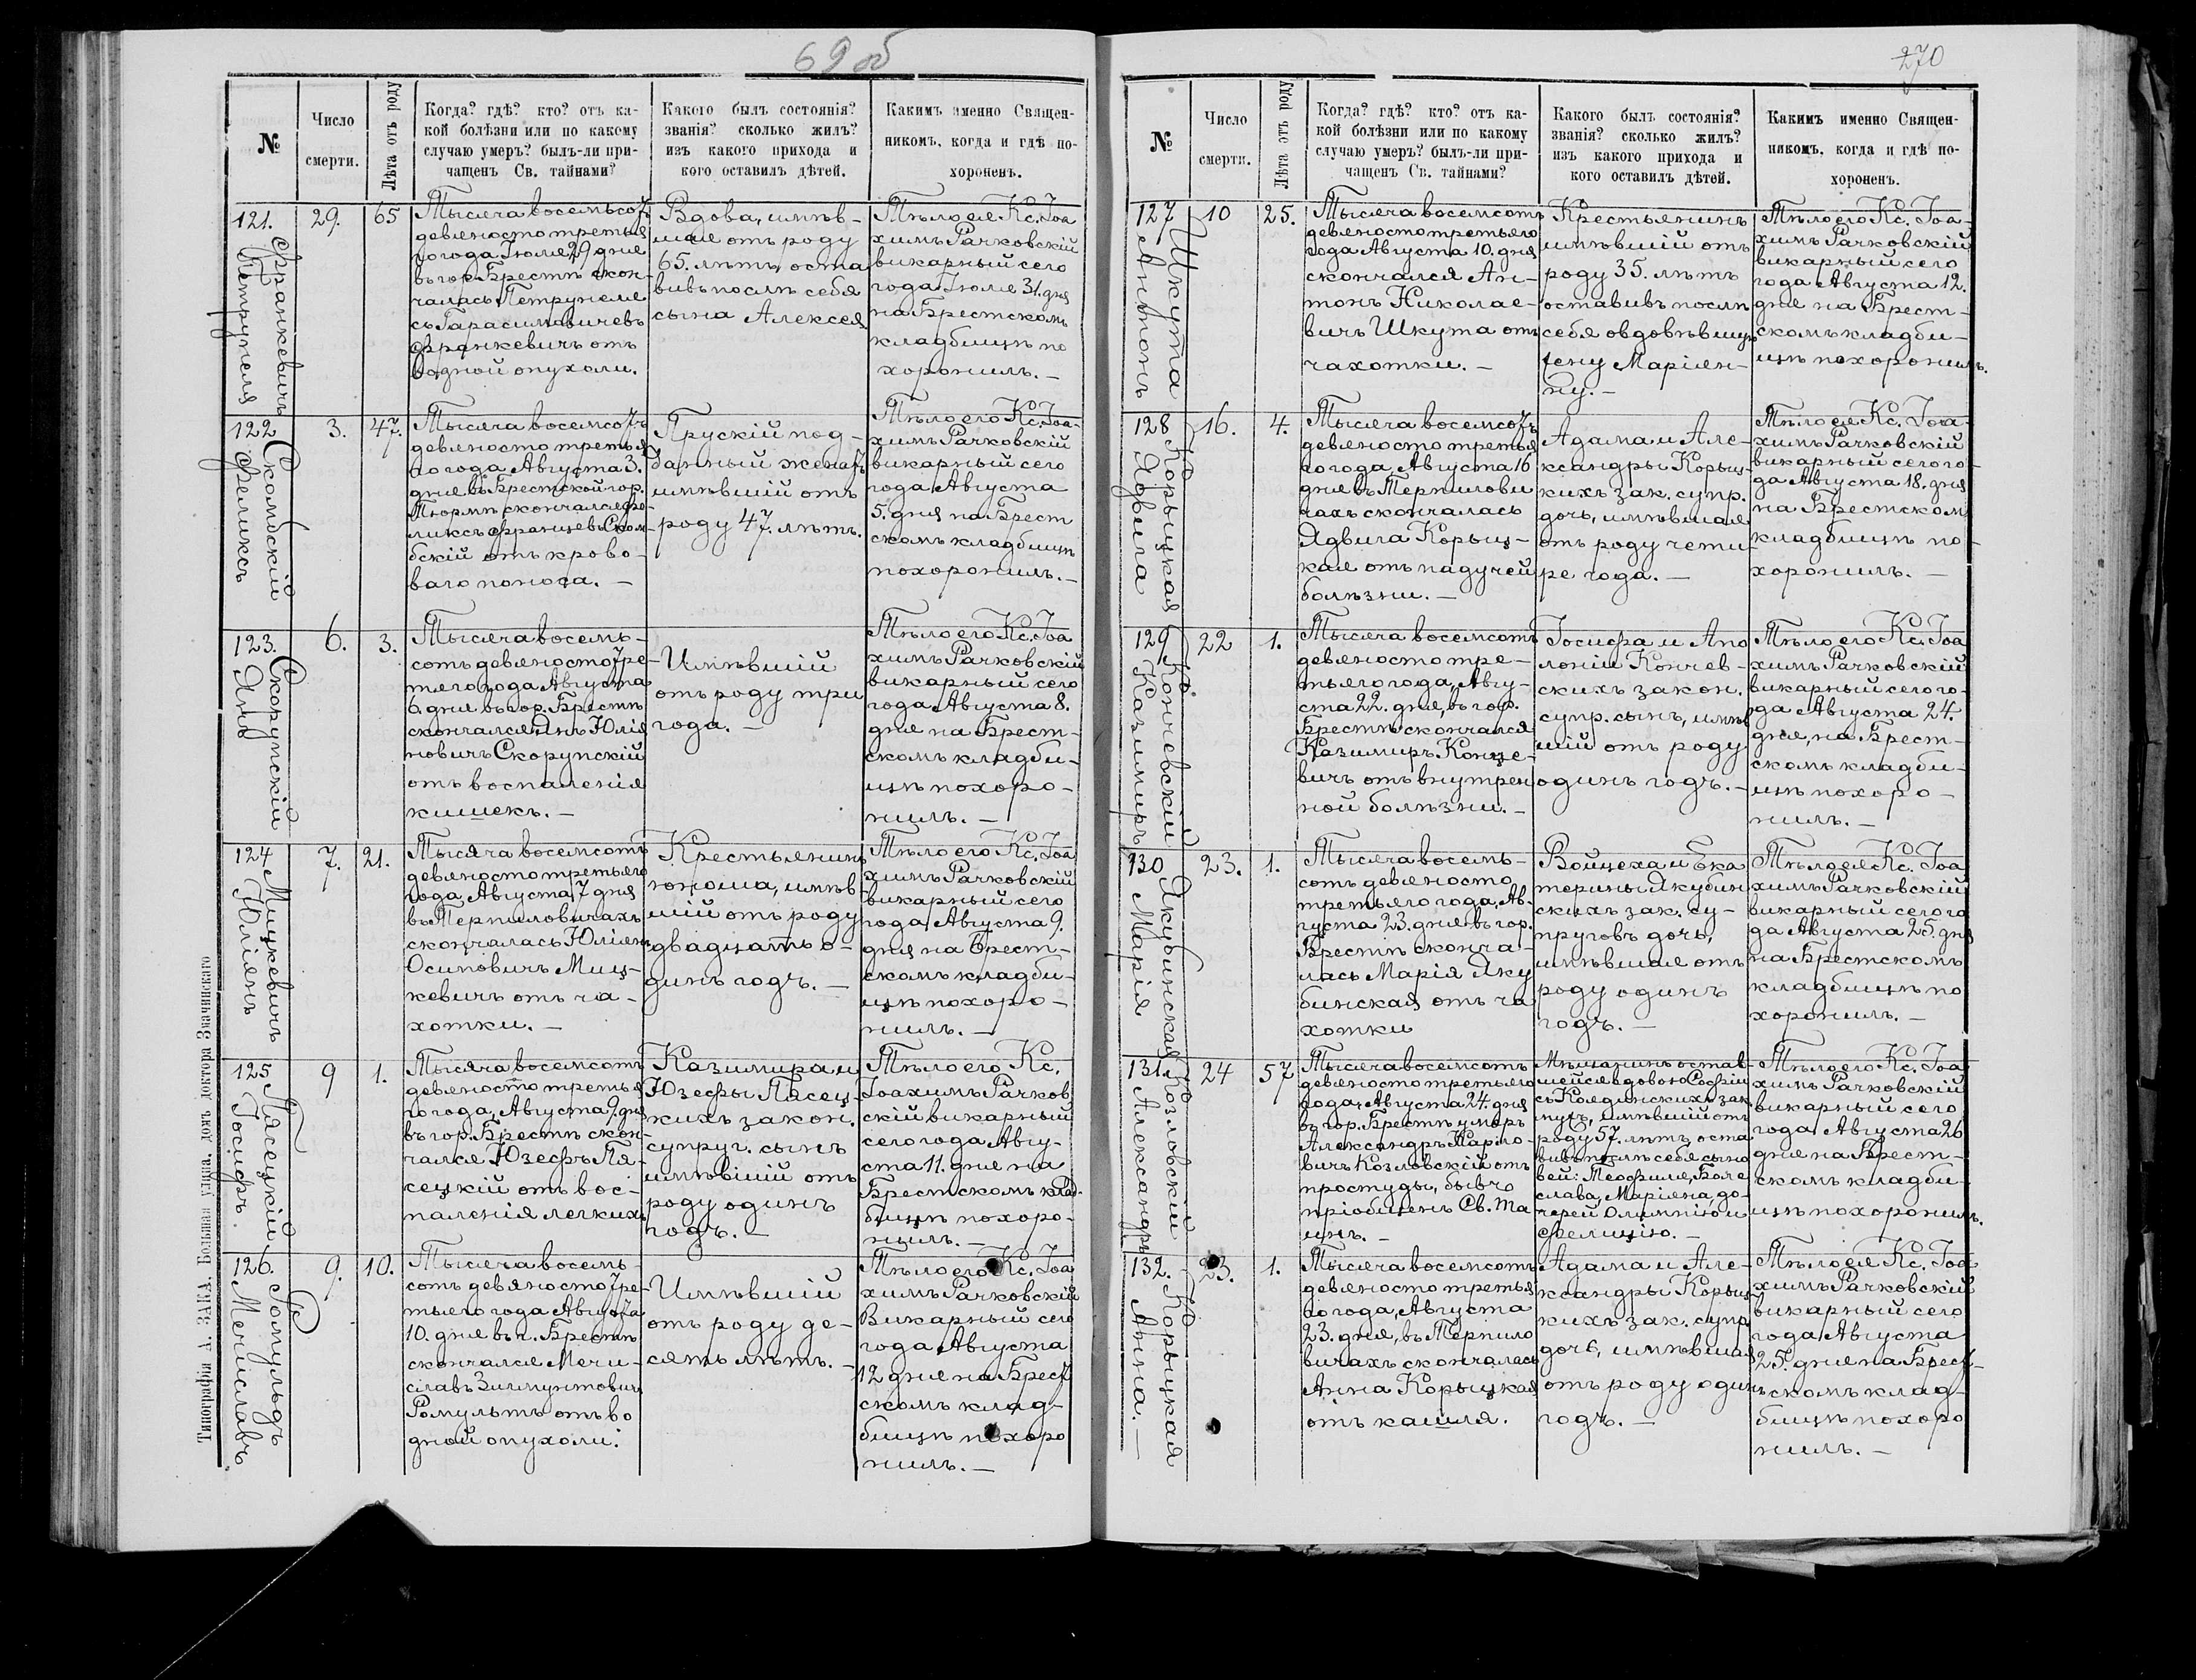 69 об
№
Число
смерти.
Лѣта отъ роду
Когда? гдѣ? кто? отъ ка-
кой болѣзни или по какому
случаю умеръ? былъ-ли при-
чащенъ Св. тайнами?
Какого былъ состоянія?
званія? сколько жилъ?
изъ какого прихода и
кого оставилъ дѣтей.
Какимъ именно Священ-
никомъ, когда и гдѣ по-
хороненъ.
121.
Франкевичъ
Петрунеля
29.
65
Тысяча восемьсотъ
девяносто третья
го года Іюля 29 дня
въ гор. Брестѣ скон-
чалась Петрунеля
съ Гарасимовичевъ
Франкевичъ отъ
водной опухоли.
Вдова, имѣв-
шая отъ роду
65. лѣтъ, оста
вивъ послѣ себя
сына Алексея
Тѣло ея Кс. Іоа
химъ Рачковскій
викарный сего
года Іюля 31. дня
на Брестскомъ
кладбищѣ по
хоронилъ. —
122
Скомбскій
Феликсъ
3.
47.
Тысяча восемсотъ
девяносто третья
го года Августа 3.
дня въ Брестской гор.
Тюрмѣ скончался Фе-
ликсъ Францевъ Ском-
бскій отъ крово-
ваго поноса. —
Прускій под-
данный женатъ
имѣвшій отъ
роду 47. лѣтъ.
Тѣло его Кс. Іоа-
химъ Рачковскій
викарный сего
года Августа
5. дня на Брест
скомъ кладбищѣ
похоронилъ. —
123.
Скорупскій
Янъ
6.
3.
Тысяча восемь-
сотъ девяносто тре-
тяго года Августа
6. дня въ гор. Брестѣ
скончался Янъ Юлія
новичъ Скорупскій
отъ воспаленія
кишекъ. —
Имѣвшій
отъ роду три
года. —
Тѣло его Кс. Іоа
химъ Рачковскій
викарный сего
года Августа 8.
дня на Брест-
скомъ кладби-
щѣ похоро-
нилъ. —
124
Мицкевичъ
Юліянъ
7.
21.
Тысяча восемсотъ
девяносто третьяго
года Августа 7 дня
въ Терпиловичахъ
скончалась Юліянъ
Осиповичъ Миц-
кевичъ отъ ча-
хотки. —
Крестьянинъ
юноша, имѣв
шій отъ роду
двадцать о-
динъ годъ. —
Тѣло его Кс. Іоа
химъ Рачковскій
викарный сего
года Августа 9.
дня на Брест-
скомъ кладби-
щѣ похоро-
нилъ. —
125
Пясецкій
Іосифъ.
9
1.
Тысяча восемсотъ
девяносто третья
го года, Августа 9. дня
въ гор. Брестѣ скон-
чался Юзефъ Пя-
сецкій отъ вос-
паленія легкихъ
Казимира и
Юзефы Пясец-
кихъ закон.
супруг. сынъ
имѣвшій отъ
роду одинъ
годъ. —
Тѣло его Кс.
Іоахимъ Рачков
скій викарный
сего года Авгу-
ста 11. дня на
Брестскомъ клад-
бищѣ похоро-
нилъ. —
126.
Ромульдъ
Мечиславъ
9.
10.
Тысяча восемь-
сотъ девяносто тре-
тьяго года Августа
10. дня въ г. Брестѣ
скончался Мечи-
славъ Зигмунтовичъ
Ромультъ отъ во
дной опухоли.
Имѣвшій
отъ роду де-
сять лѣтъ. —
Тѣло его Кс. Іоа
химъ Рачковскій
Викарный сего
года Августа
12 дня на Брест
скомъ клад-
бищѣ похоро
нилъ. —
Типографія А. ЗАКА. Большая улица, домъ доктора Значинскаго
270
№
Число
смерти.
Лѣта отъ роду
Когда? гдѣ? кто? отъ ка-
кой болѣзни или по какому
случаю умеръ? былъ-ли при-
чащенъ Св. тайнами?
Какого былъ состоянія?
званія? сколько жилъ?
изъ какого прихода и
кого оставилъ дѣтей.
Какимъ именно Священ-
никомъ, когда и гдѣ по-
хороненъ.
127
Шкута
Антонъ
10
25.
Тысяча восемсотъ
девяносто третьяго
года Августа 10. дня
скончался Ан-
тонъ Николае-
вичъ Шкута отъ
чахотки. —
Крестьянинъ
имѣвшій отъ
роду 35. лѣтъ
оставивъ послѣ
себя овдовѣвшую
жену Маріян-
ну. —
Тѣло его Кс. Іоа-
химъ Рачковскій
викарный сего
года Августа 12.
дня на Брест-
скомъ кладби-
щѣ похоронилъ.
128
Корыцкая
Ядвига
16.
4.
Тысяча восемсотъ
девяносто третья
го года, Августа 16
дня въ Терпилови
чахъ скончалась
Ядвига Корыц-
кая отъ падучей
болѣзни. —
Адама и Але-
ксандры Корыц-
кихъ зак. супр.
дочь, имѣвшая
отъ роду четы-
ре года. —
Тѣло ея Кс. Іоа-
химъ Рачковскій
викарный сего го-
да Августа 18. дня
на Брестском
кладбищѣ по-
хоронилъ. —
129
Кончевскій
Казимиръ
22
1.
Тысяча восемсотъ
девяносто тре-
тьяго года, Авгу-
ста 22. дня, въ гор.
Брестѣ скончался
Казимиръ Конце-
вичъ отъ внутрен
ной болѣзни. —
Іосифа и Апо
лоніи Кончев-
скихъ закон.
супр. сынъ, имѣв
шій отъ роду
одинъ годъ. —
Тѣло его Кс. Іоа
химъ Рачковскій
викарный сего го-
да Августа 24.
дня, на Брест-
скомъ кладби-
щѣ похоро-
нилъ. —
130
Якубинская
Марія
23.
1.
Тысяча восемь-
сотъ девяносто
третьяго года, Ав-
густа 23. дня въ гор.
Брестѣ сконча-
лась Марія Яку
бинская отъ ча
хотки
Войцеха и Ека
терины Якубин
скихъ зак. су-
пруговъ дочь,
имѣвшая отъ
роду одинъ
годъ. —
Тѣло ея Кс. Іоа
химъ Рачковскій
викарный сего го
да Августа 25. дня
на Брестскомъ
кладбищѣ по
хоронилъ. —
131.
Козловскій
Александръ
24
57
Тысяча восемсотъ
девяносто третьяго
года, Августа 24. дня
въ гор. Брестѣ умеръ
Александръ Карло-
вичъ Козловскій отъ
простуды, бывъ
пріобщенъ Св. Та
инъ. —
Мѣщанинъ остав
шейся вдовою Софіи
роду 57. лѣтъ, оста
вивъ послѣ себя сыно
вей: Теофиля, Боле
слава, Маріяна, до-
черей Олимпію и
Фелицію. —
Тѣло его Кс. Іоа
химъ Рачковскій
викарный сего
года Августа 26
дня на Брест-
скомъ кладби-
щѣ похоронилъ.
132.
Корыцкая
Анна. —
23.
1.
Тысяча восемсотъ
девяносто третья
го года, Августа
23. дня, въ Терпило
вичахъ скончалась
Анна Корыцкая
отъ кашля.
Адама и Але-
ксандры Корыц-
кихъ зак. супр
дочь, имѣвшая
отъ роду одинъ
годъ. —
Тѣло ея Кс. Іоа
химъ Рачковскій
викарный сего
года Августа
25. дня на Брест-
скомъ клад-
бищѣ похоро
нилъ. —